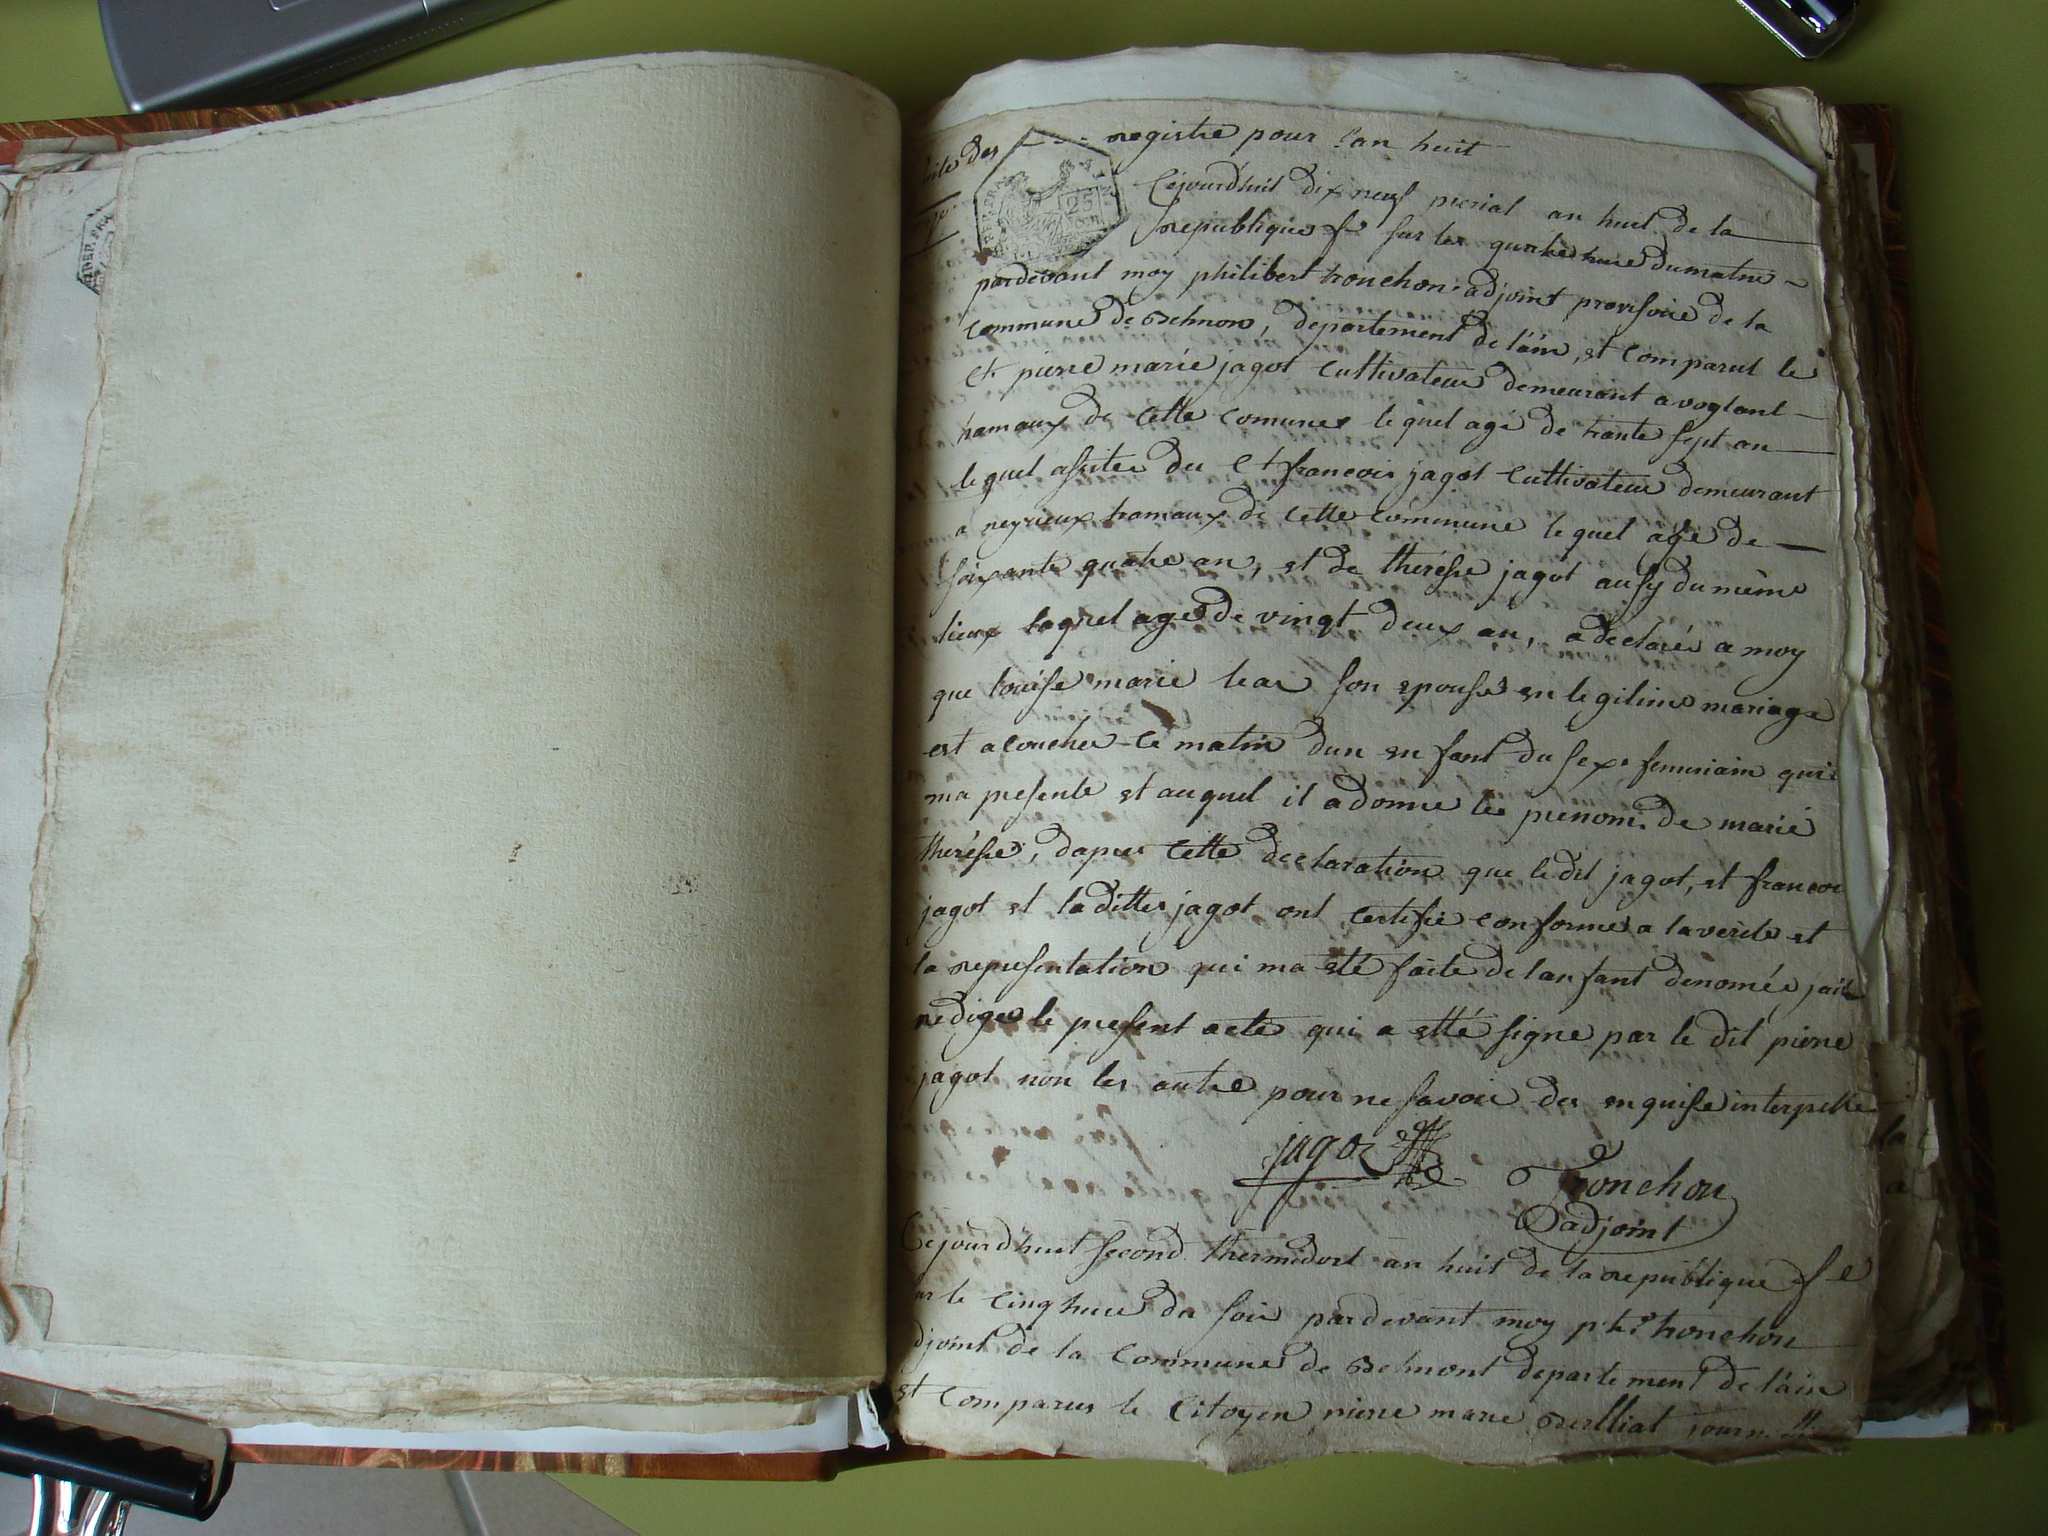 suite des registre pour l'an huit
25
Cejourdhuit dix neuf prerial an huit de la
republique f.se sur les quatre heure du matin
pardevant moy philibert tronchon adjoint provisoire de la
commune de Belmon, departement de l'ain, et comparut le
Ct pierre marie jagot cultivateur demeurant a voglant
hamaux de cette comune lequel agé de trante sept an
lequel assiter du Ct francois jagot cultivateur demeurant
a neyrieux hamaux de cette commune lequel agé de
soixante quatre an, et de thérése jagot aussy du même
lieux laquel agé de vingt deux an, a declaré a moy
que louise marie son epouse en legitime mariage
est acouchée ce matin dun enfant du sexe femeniain qui
ma presenté et auquel il a donné les prenom de marie
thérése, dapres cette declaration que ledit jagot, et francois
jagot et laditte jagot ont certifié conforme a la verité et
la representation qui ma eté faite de lanfant denomée jait
rediger le present acte qui a etté signé par le dit pierre
jagot non les autre pour ne savoir des enquise interpellé
jagot Tronchon
adjoint
Cejourdhuit second thermidort an huit de la republique f.se
sur le cinq heure du soir pardevant moy ph.t tronchon
adjoint de la commune de Belmont departement de lain
et comparus le Citoyen pierre marie